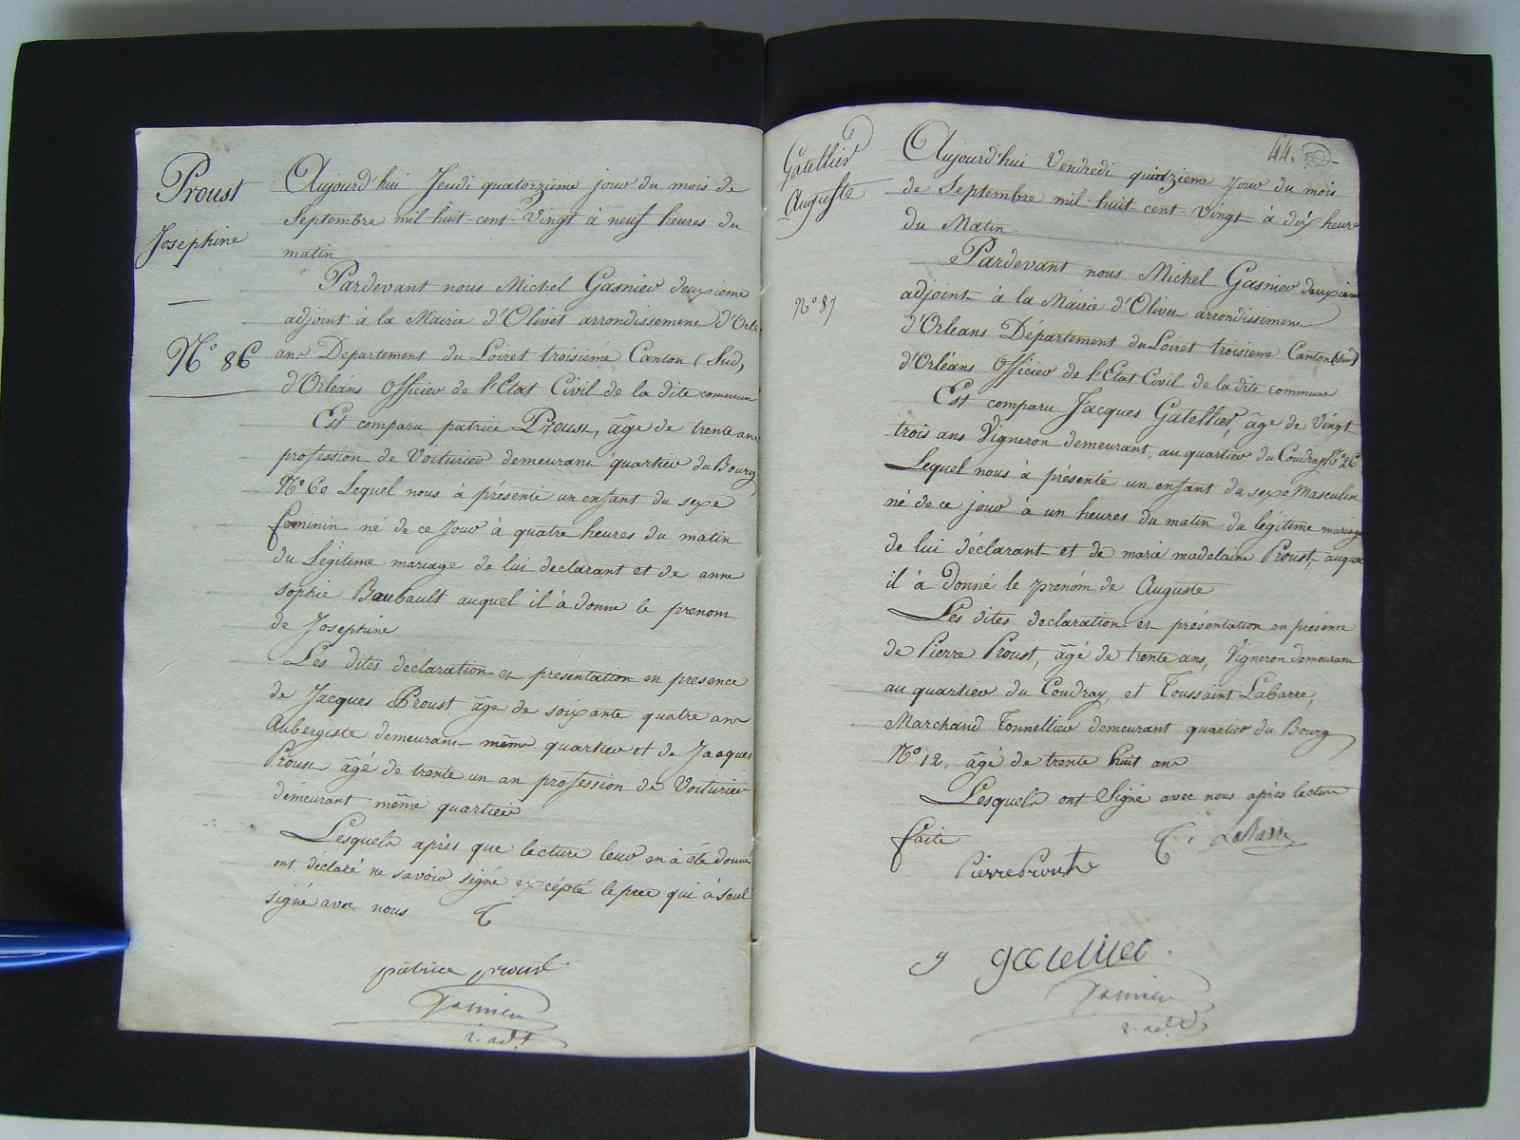 Proust
Josephine
N° 86
Aujourd'hui Jeudi quatorzieme jour du mois de
Septembre mil huit-cent-Vingt à neuf heures du
matin
Pardevant nous Michel Gasnier deuxieme
adjoint à la Mairie d'Olivet arrondissement d'Orle
ans Departement du Loiret troisieme Canton (Sud)
d'Orléans Officier de l'Etat Civil de la dite commune
Est comparu patrice Proust, âge de trente ans
profession de Voiturier demeurant quartier du Bourg
N° 60 Lequel nous à présenté un enfant du sexe
feminin né de ce Jour à quatre heures du matin
du Légitime mariage de lui declarant et de anne
sophie Baubault auquel il à donne le prenom
de Josephine
Les dites déclaration et présentation en presence
de Jacques Proust âge de soixante quatre ans
Aubergiste demeurant même quartier et de Jacques
Proust âgé de trente un an profession de Voiturier
demeurant même quartier
Lesquels après que lecture leur en à été donné
ont déclaré ne savoir signé excépté le pere qui à seul
signé avec nous
patrice proust
Gasnier
2. adj.t
44.
Gatellier
Auguste
N° 87
Aujourd'hui Vendredi quinzieme Jour du mois
de Septembre mil-huit cent-Vingt à dix heures
du Matin
Pardevant nous Michel Gasnier deuxieme
adjoint à la Mairie d'Olivet arrondissement
d'Orleans Département du Loiret troisieme Canton (Sud)
d'Orléans Officier de l'Etat Civil de la dite commune
Est comparu Jacques Gatellier, âge de Vingt
trois ans Vigneron demeurant au quartier du Coudray N° 26
Lequel nous à présenté un enfant du sexe Masculin
né de ce jour à un heures du matin du légitime mariage
de lui déclarant et de marie madelaine Proust, auquel
il à donné le prenom de Auguste
Les dites declaration et présentation en présence
de Pierre Proust, âgé de trente ans, Vigneron demeurant
au quartier du Coudray, et Toussaint Labarre,
Marchand Tonnellier demeurant quartier du Bourg
N° 12, âgé de trente huit ans
Lesquels ont Signé avec nous après lecture
faite
Pierre Proust
Labarre
gatellier
Gasnier
2. adj.t